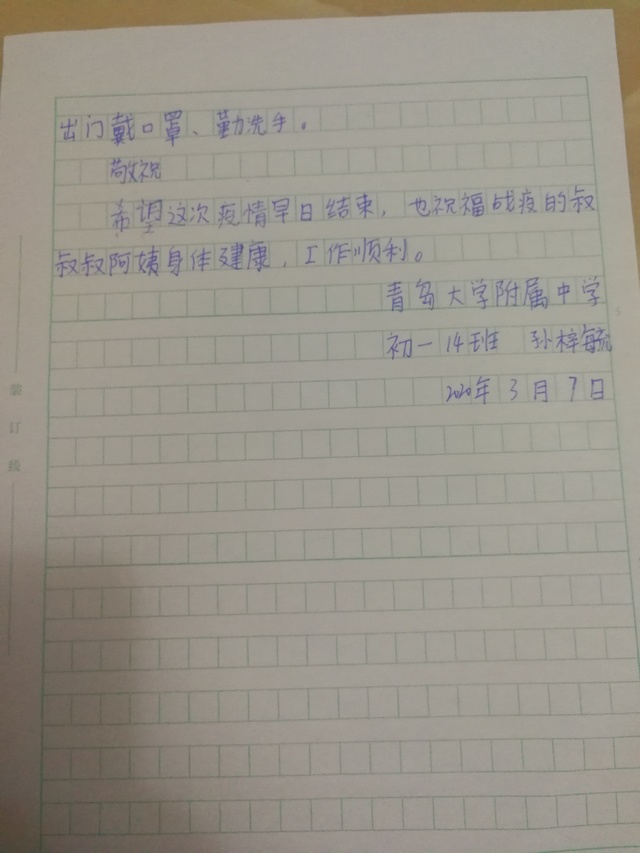 出门戴口罩、勤洗手。
敬祝
希望这次疫情早日结束，也祝福战疫的叔
叔叔阿姨身体健康，工作顺利。
青岛大学附属中学
初一14班 孙梓毓
2020年3月7日
装订线